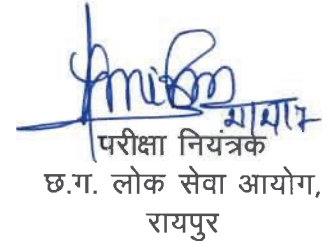 परीक्षा नियंत्रक
छ.ग. लोक सेवा आयोग,
रायपुर